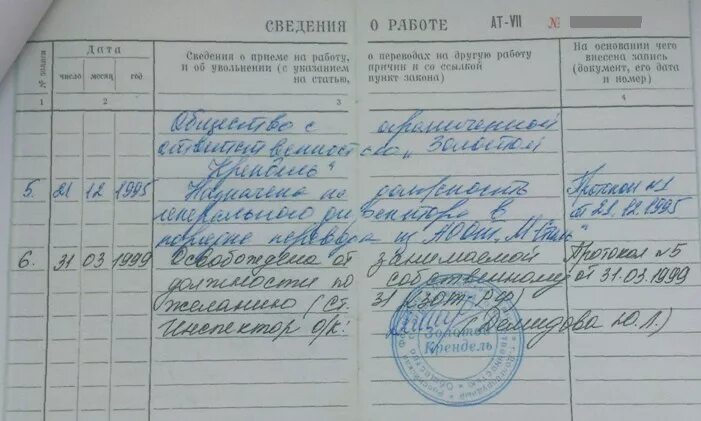 СВЕДЕНИЯ О РАБОТЕ АТ-VII №
№ записи
Дата
число месяц год
Сведения о приеме на работу, о переводах на другую работу
и об увольнении (с указанием причин и со ссылкой
на статью, пункт закона)
На основании чего
внесена запись
(документ, его дата
и номер)
1 2 3 4
Общество с ограниченной
ответственностью „Золотой
Крендель"
5. 21 12 1995 Назначена на должность Протокол №1
генерального директора в от 21.12.1995
порядке перевода из АООт „М Стиль"
6. 31 03 1999 Освобождена от занимаемой Протокол №5
должности по собственному от 31.03.1999
желанию (ст. 31 КЗоТ РФ)
Инспектор о/к: (Демидова Ю.Л.)
Золотой
Крендель